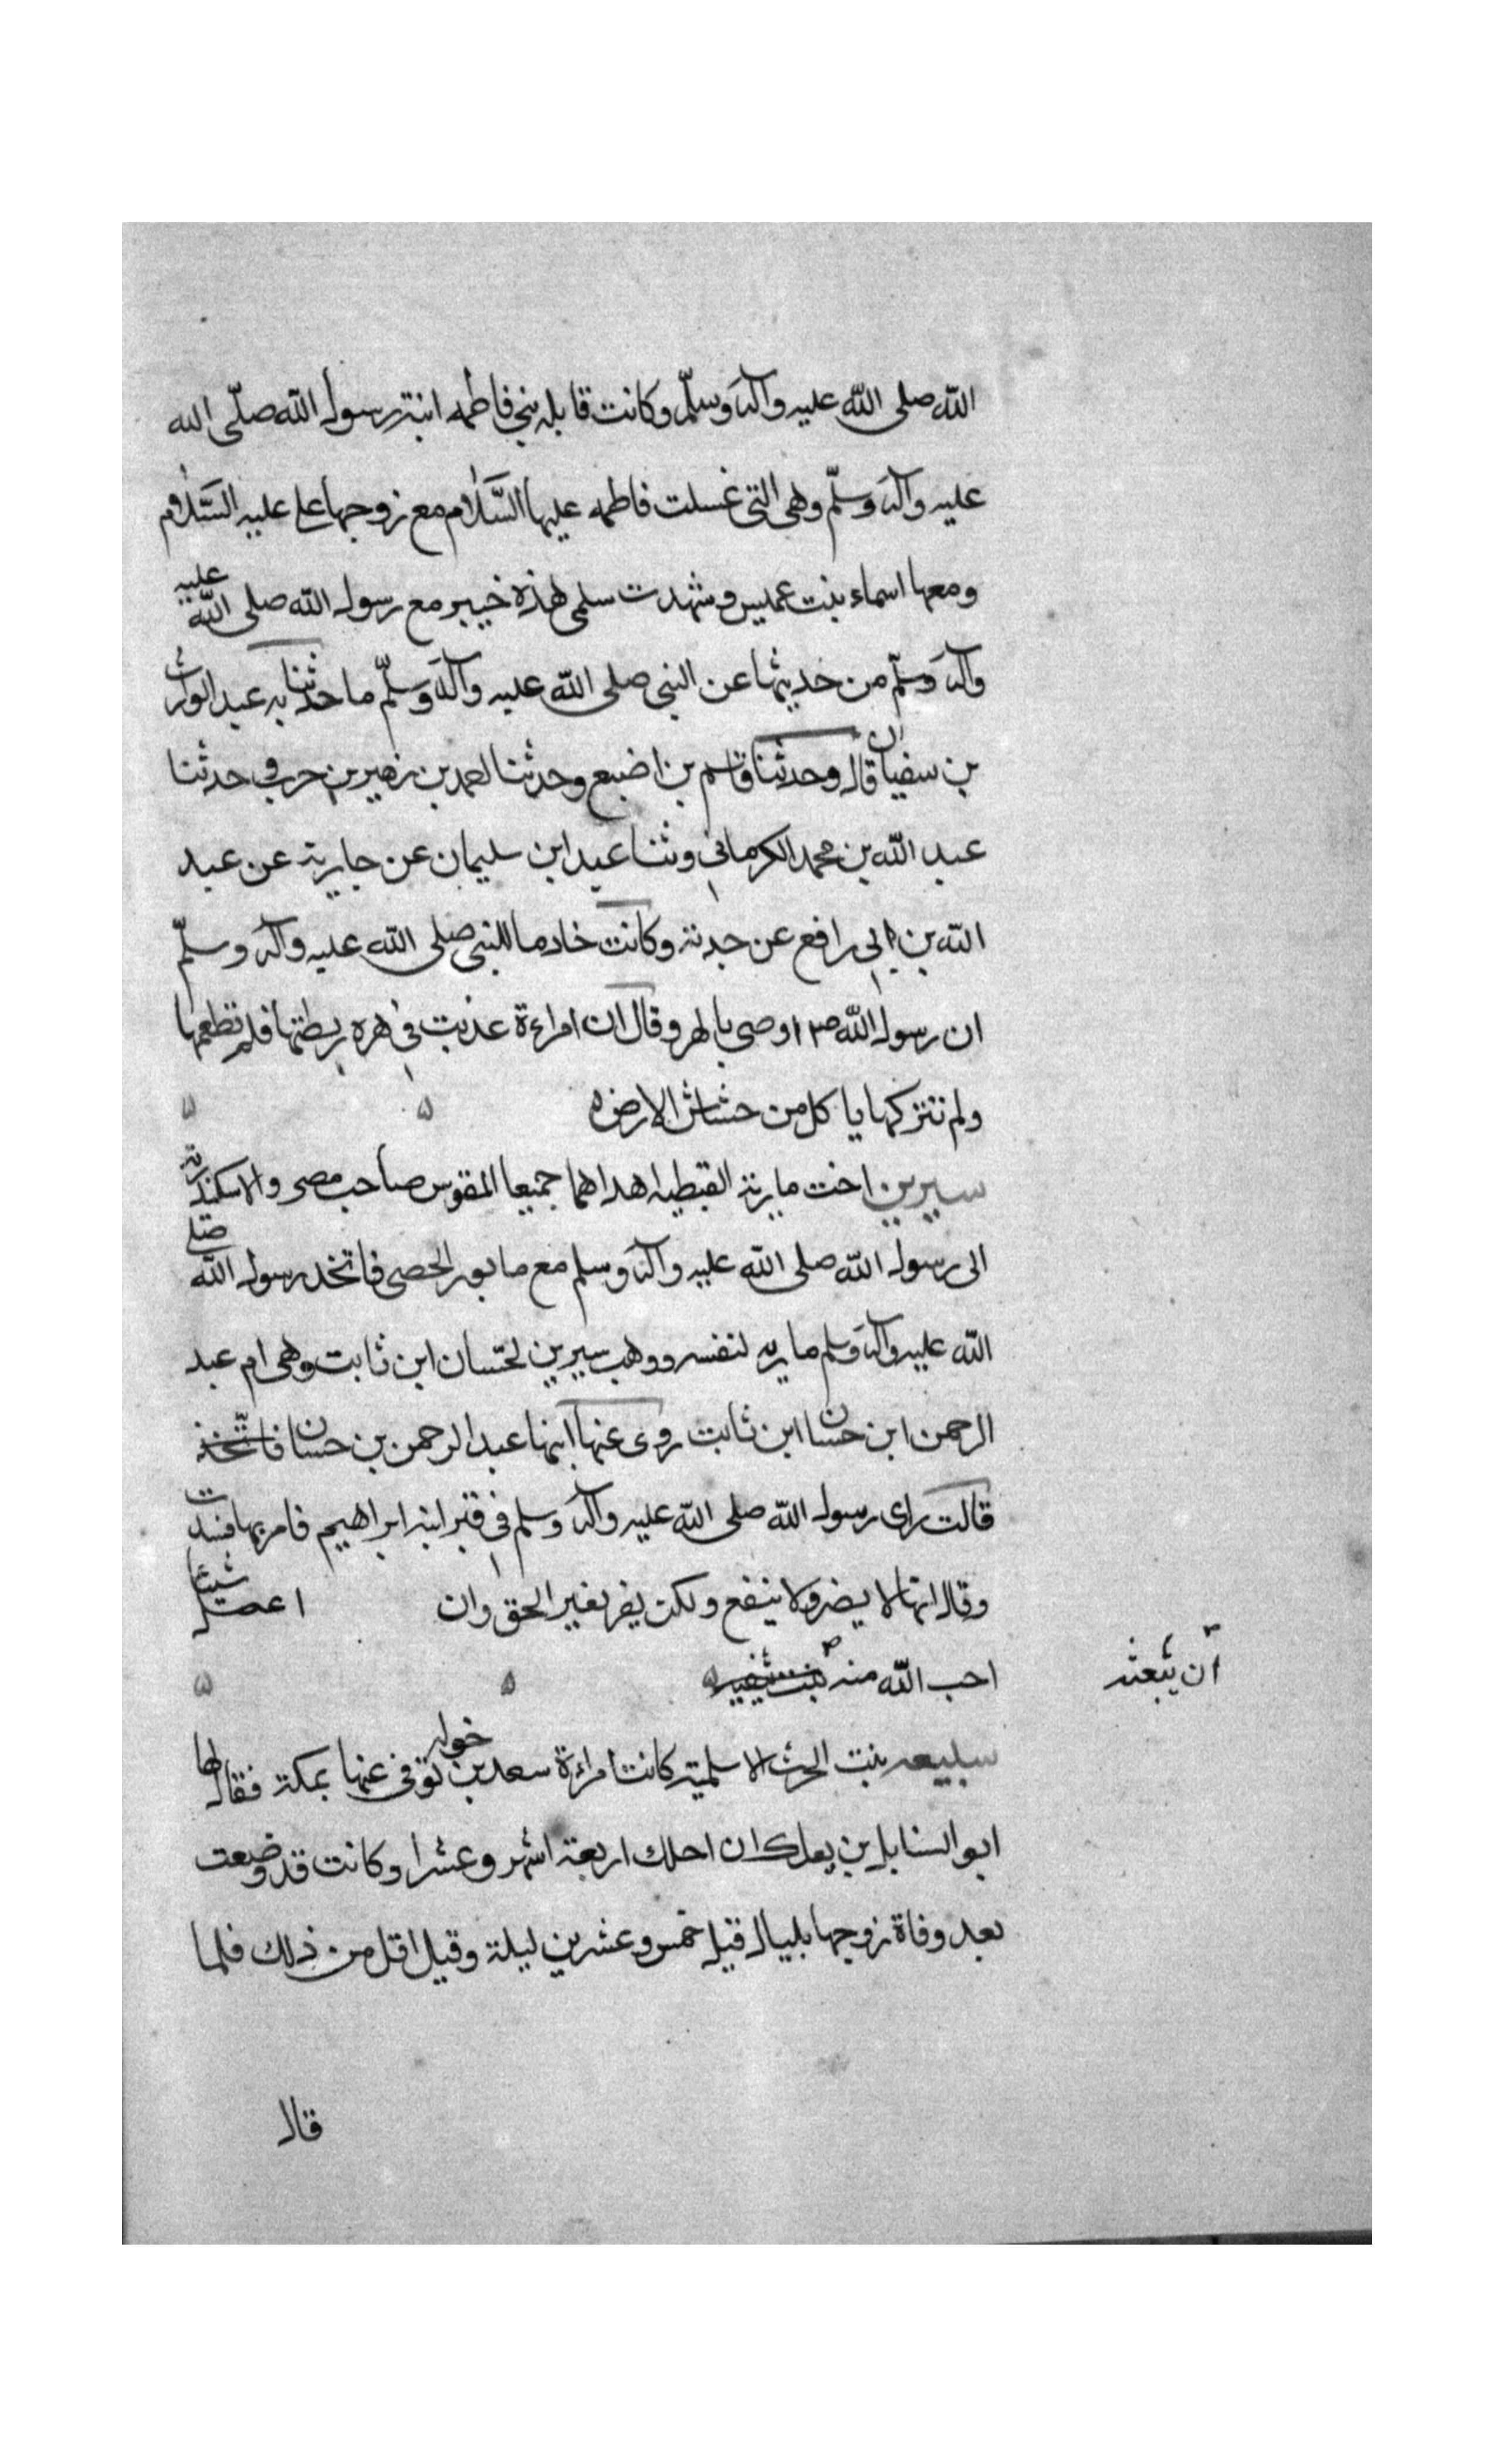 الله صلى الله عليه وآله وسلّم وكانت قابله بني فاطمه ابنة رسول الله صلّى الله
عليه وآله وسلّم وهى التى غسلت فاطمه عليها السَّلام مع زوجها على عليه السَّلام
ومعها اسماء بنت عميس وشهدت سلمى هذه خيبر مع رسول الله صلى الله عليه
وآله وسلّم من حديثها عن النبى صلى الله عليه وآله وسلّم ما حدثنا به عبد الوارث
بن سفيان قال وحدثنا قاسم بن اضبع وحدثنا احمد بن زهير بن حرب حدثنا
عبد الله بن محمد الكرماني وثنا عبد ابن سليمان عن جارية عن عبد
الله بن ابى رافع عن جدته وكانت خادما للنبى صلى الله عليه وآله وسلّم
ان رسول الله ص اوصى بالهر وقال ان امراءة عذبت فى هره ربطتها فلم تطعمها
ولم تتركها ياكل من حشاش الارض ه
سيرين اخت مارية القبطيه اهداهما جميعا المقوس صاحب مصر والاسكندرية
الى رسول الله صلى الله عليه وآله وسلم مع مابور الخصى فاتخذ رسول الله صلى
الله عليه وآله وسلم ماريه لنفسه ووهب سيرين لحسّان ابن ثابت وهى ام عبد
الرحمن ابن حسان ابن ثابت روى عنها ابنها عبد الرحمن بن حسان فاتّخذ
قالت راى رسول الله صلى الله عليه وآله وسلم فى قبر ابنه ابراهيم فامر بها فسدت
وقال انها لا يضر ولا ينفع ولكن يقر بغير الحق وان اعمل شيئا
احب الله منه بنت
ان يبعثه
سبيعه بنت الحرث الاسلمية كانت امراءة سعد بن خوله توفى عنها بمكة فقال لها
ابو السنابل بن بعكك ان احلك اربعة اشهر وعشرا وكانت قد وضعت
بعد وفاة زوجها بليال قيل خمس وعشرين ليلة وقيل اقل من ذلك فلما
قال